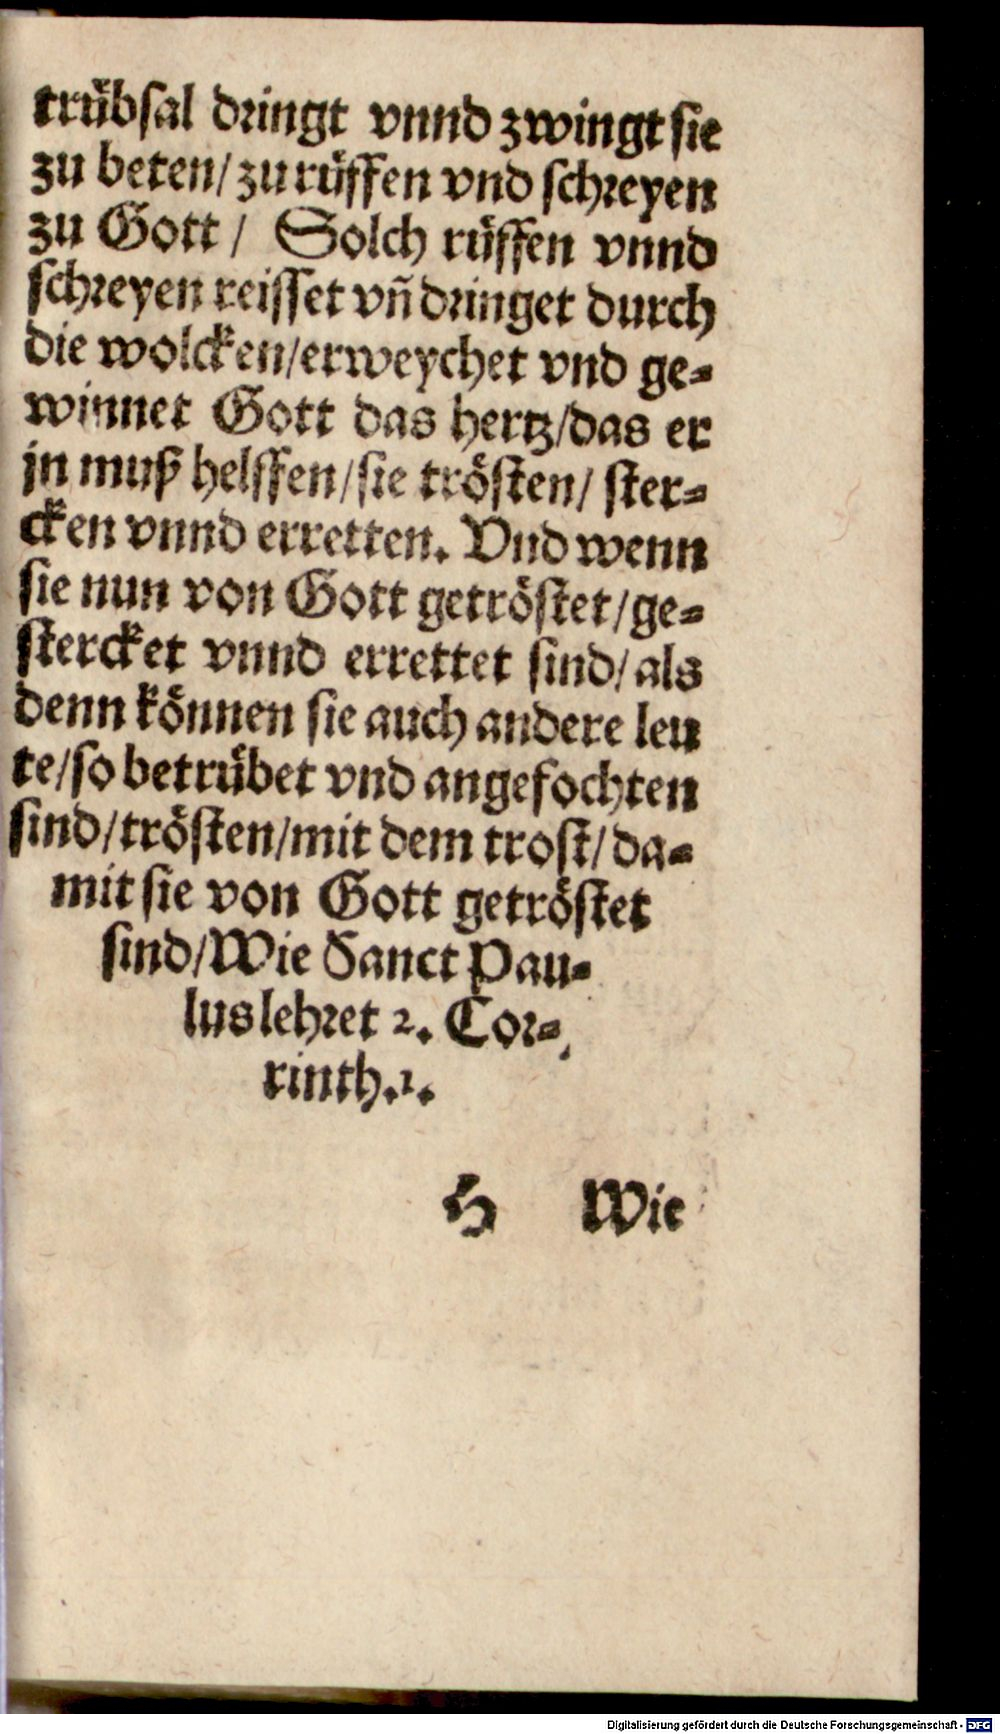 trübsal dringt vnnd zwingt sie
zu beten/ zu rüffen vnd schreyen
zu Gott/ Solch rüffen vnnd
schreyen reisset vñ dringet durch
die wolcken/ erweychet vnd ge-
winnet Gott das hertz/ das er
jn muß helffen/ sie trösten/ ster-
cken vnnd erretten. Vnd wenn
sie nun von Gott getröstet/ ge-
stercket vnnd errettet sind/ als
denn können sie auch andere leu
te/ so betrübet vnd angefochten
sind/ trösten/ mit dem trost/ da-
mit sie von Gott getröstet
sind/ Wie Sanct Pau-
lus lehret 2. Cor-
rinth. 1.
H Wie
Digitalisierung gefördert durch die Deutsche Forschungsgemeinschaft - DFG